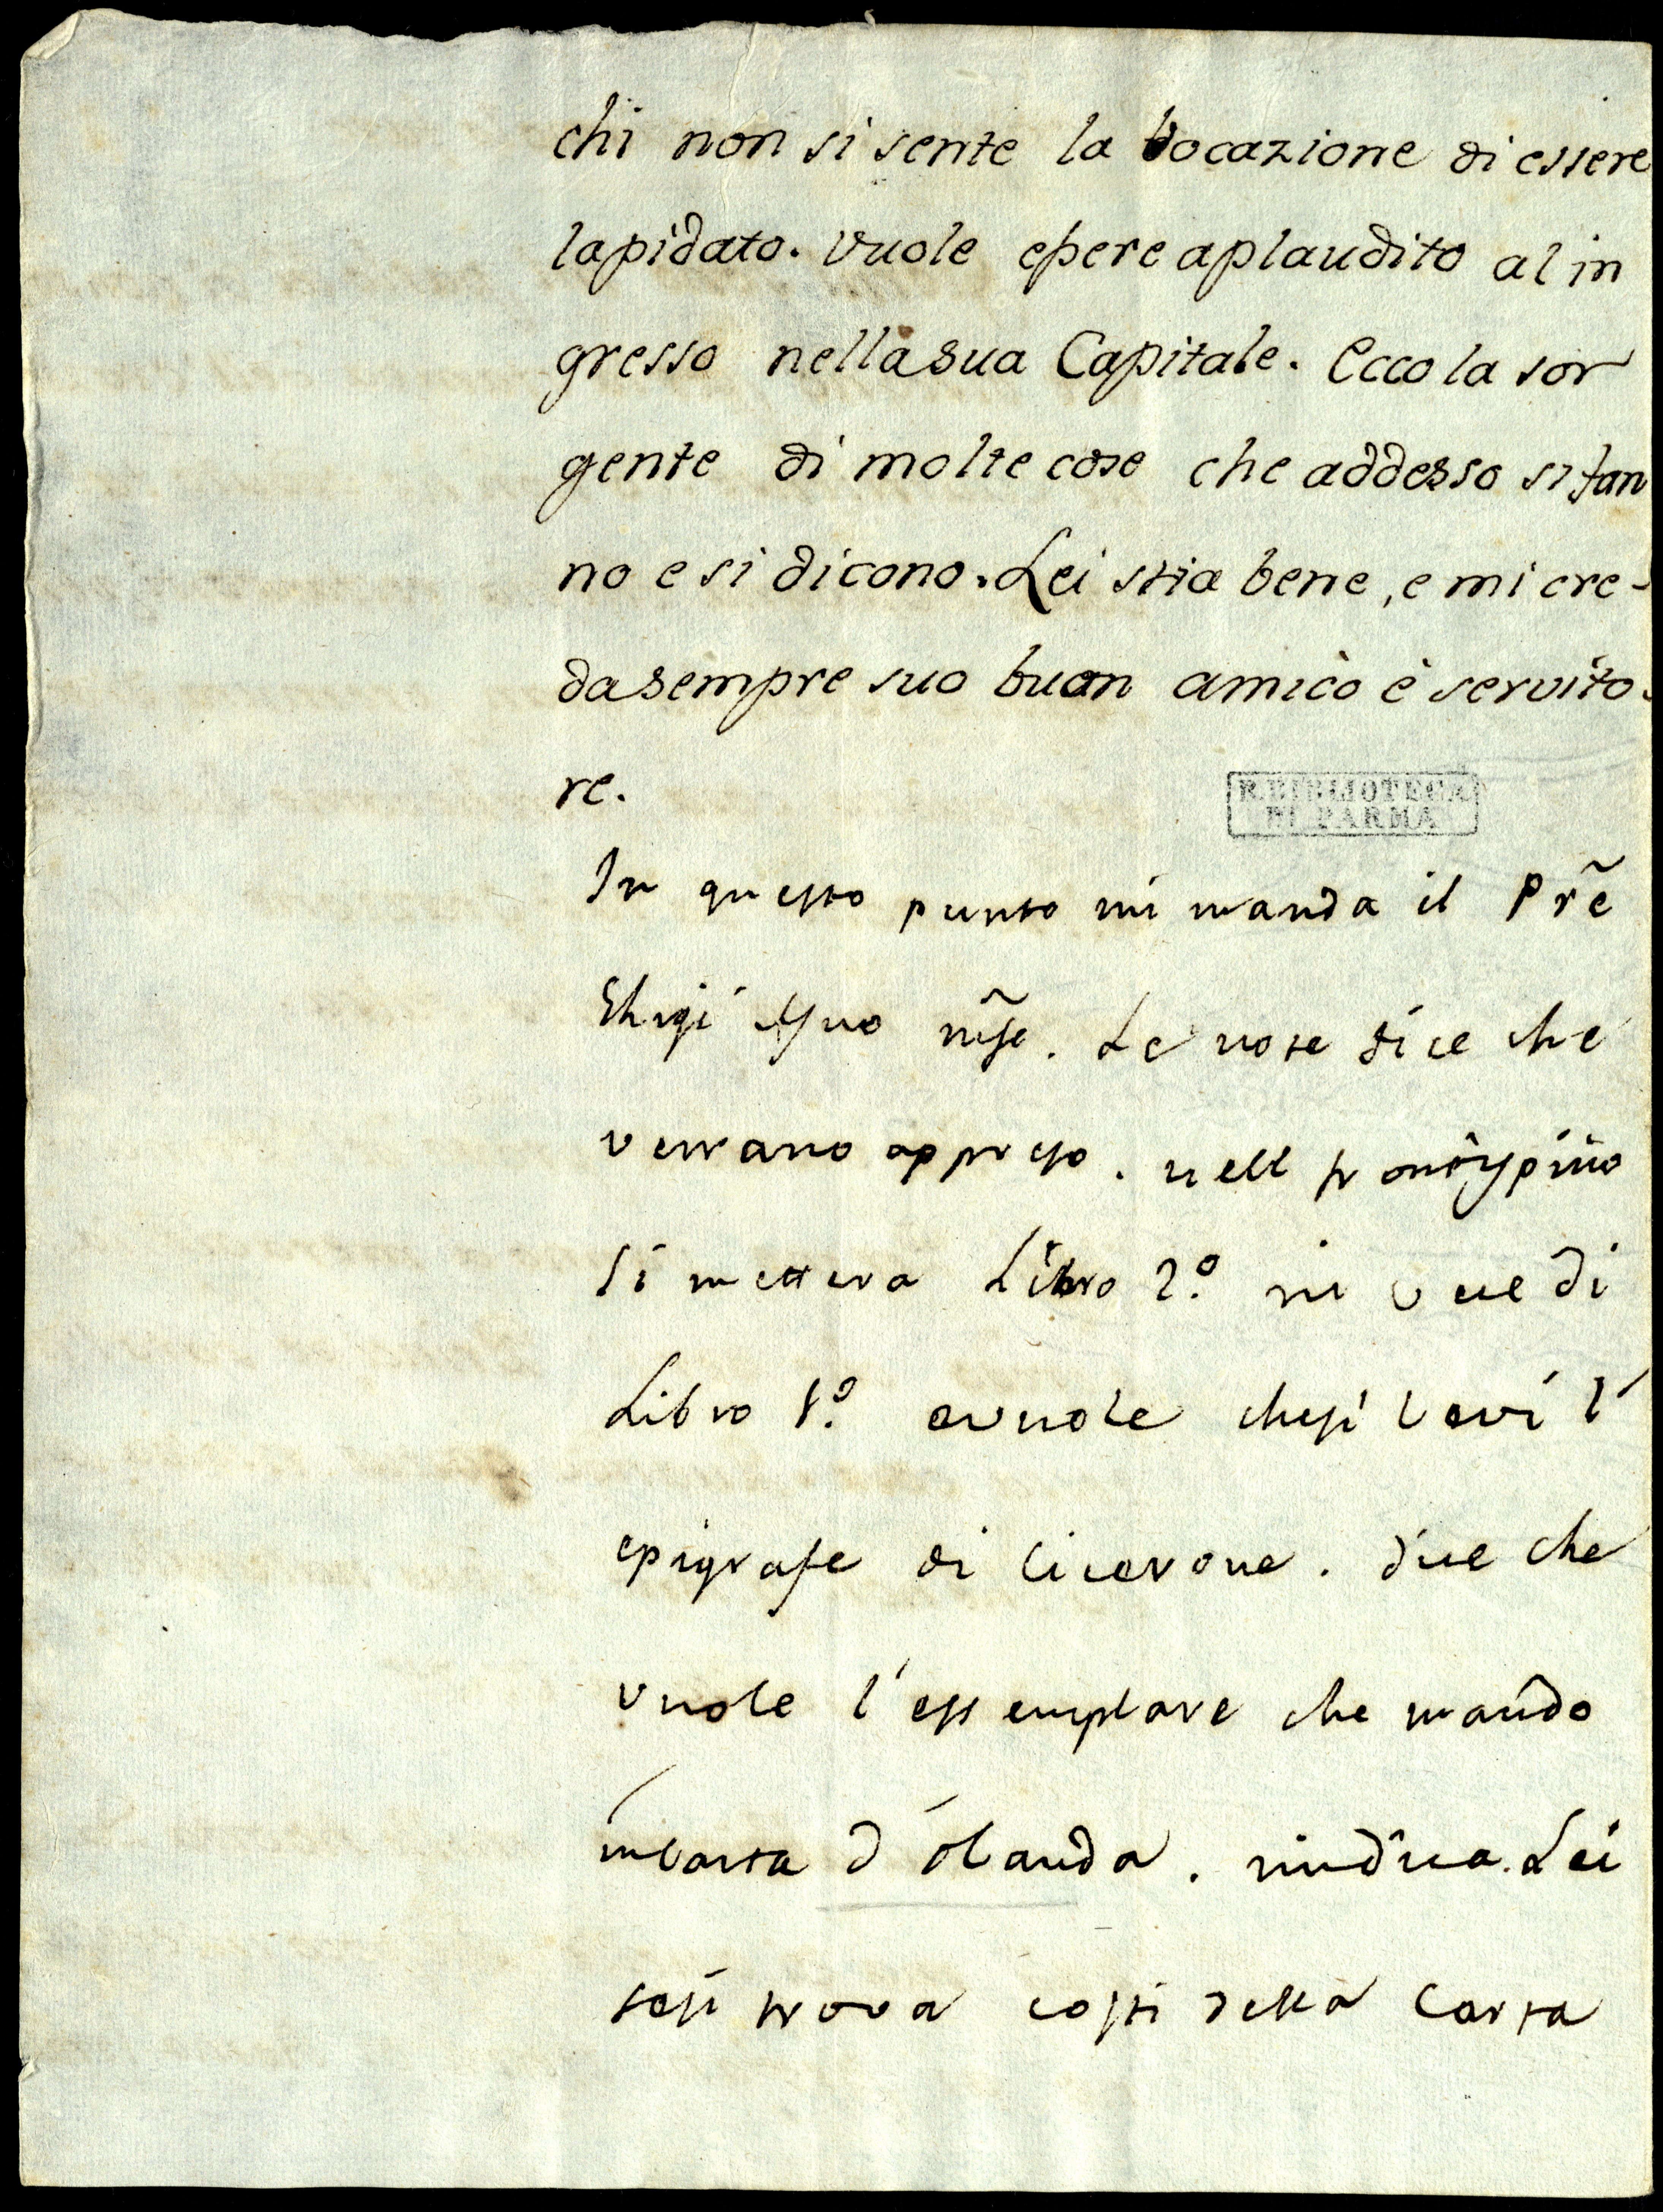 chi non si sente la vocazione di essere
lapidato. Vuole essere aplaudito al in
gresso nella sua Capitale. Ecco la sor
gente di molte cose che addesso si fan
no e si dicono. Lei stia bene, e mi cre-
da sempre suo buon amico è servito-
re.
R. BIBLIOTECA
DI PARMA
In questo punto mi manda il Prẽ
suo. Le note dice che
verrano appresso. nell frontispizio
si mettera Libro 2.º in vece di
Libro 1.º e vuole che si levi l'
epigrafe di Cicerone. dice che
vuole l'essemplare che mando
in Carta d'Olanda. mi dica Lei
se si trova costi della Carta